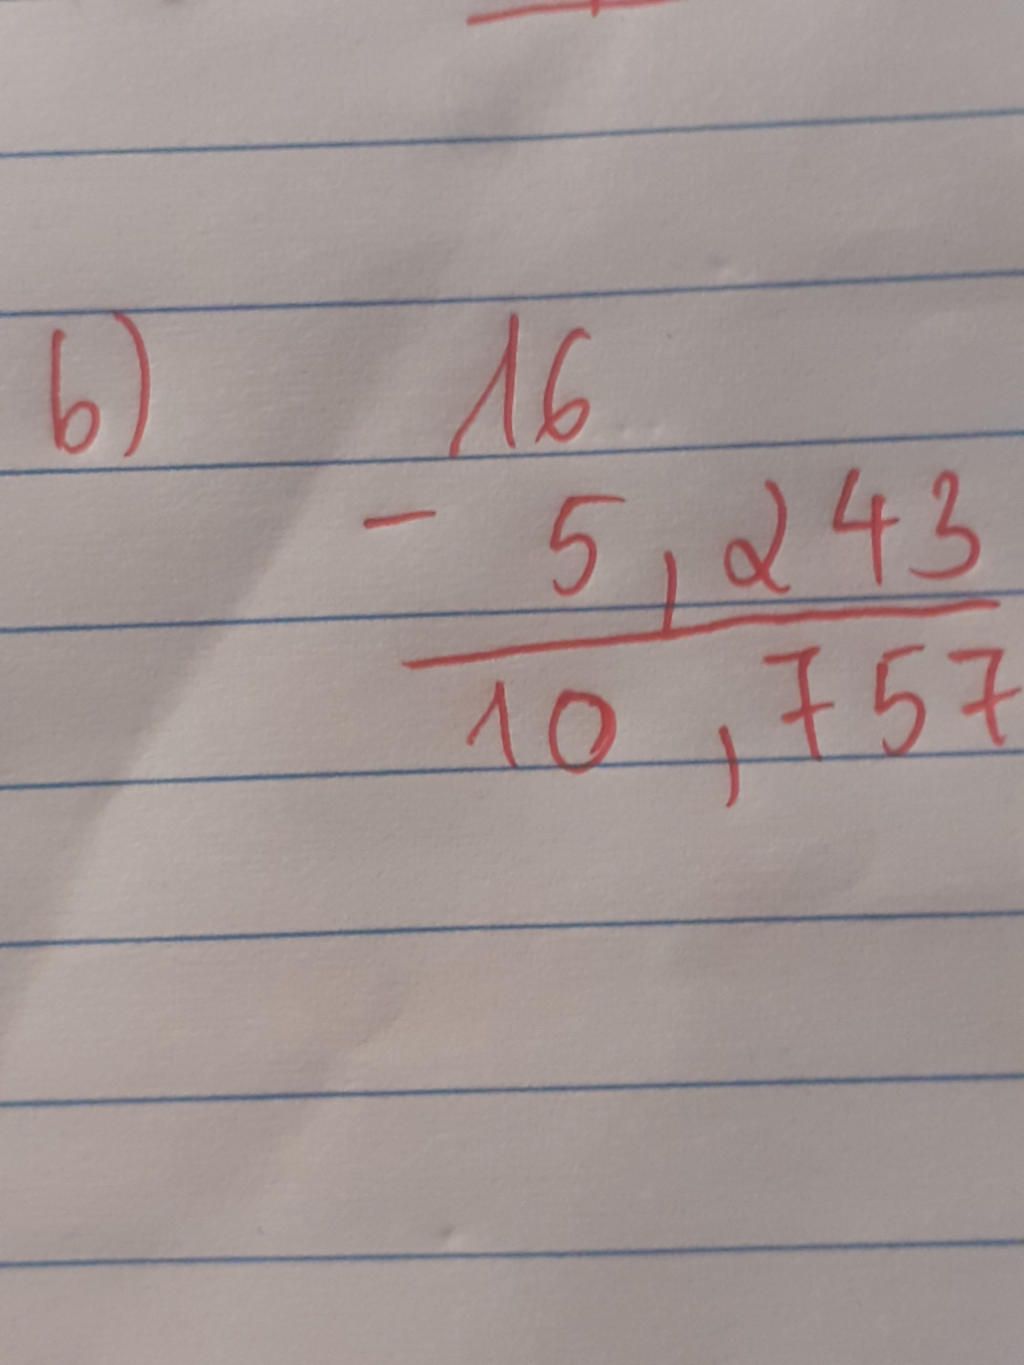 b) 16
- 5,243
10,757